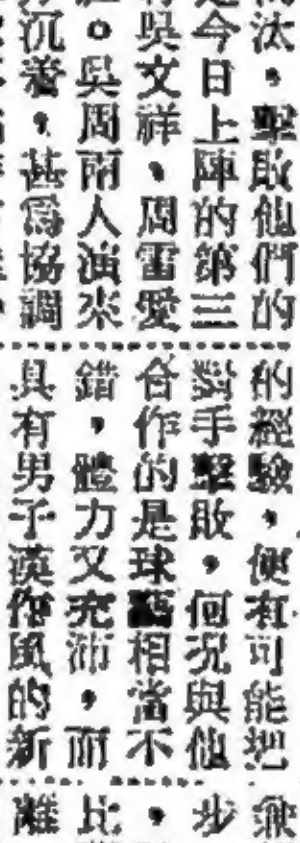 汰,擊敗他們的
今日上陣的第三
吳文祥,周雷愛
。吳周兩人演來
沉着,甚爲協調
的經驗,便有可能把
對手擊敗,何況與他
合作的是球藝相當不
錯,體力又充沛,而
具有男子漢作風的新
步
,
比
離